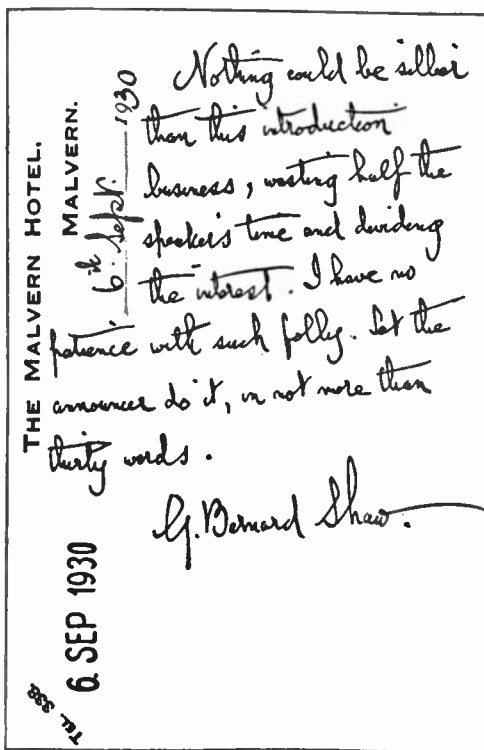 THE MALVERN HOTEL.
MALVERN.
6th Sept. 1930
Nothing could be sillier
than this introduction
business, wasting half the
speaker's time and dividing
the interest. I have no
patience with such folly. Let the
announcer do it, in not more than
thirty words.
G. Bernard Shaw.
6 SEP 1930
TEL. 339.